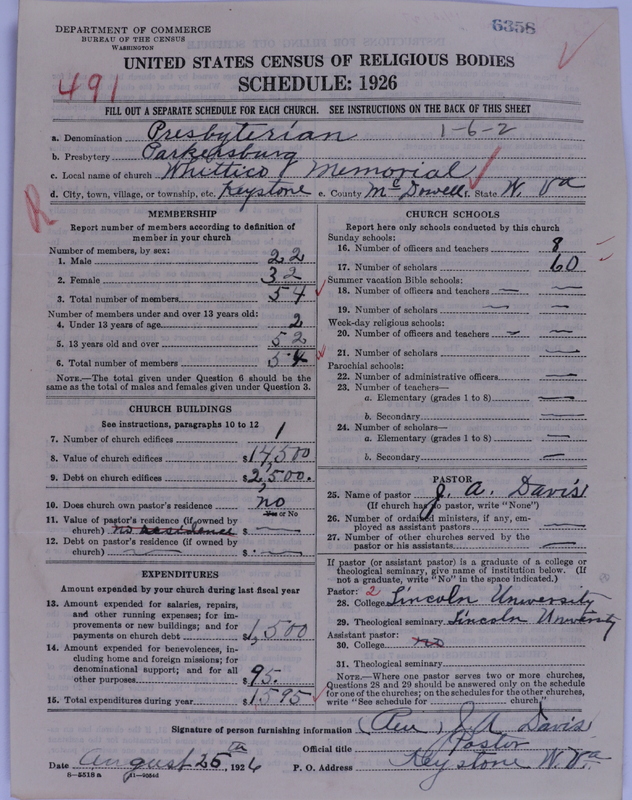 DEPARTMENT OF COMMERCE
BUREAU OF THE CENSUS
WASHINGTON
6358
UNITED STATES CENSUS OF RELIGIOUS BODIES
SCHEDULE: 1926
491
FILL OUT A SEPARATE SCHEDULE FOR EACH CHURCH. SEE INSTRUCTIONS ON THE BACK OF THIS SHEET
a. Denomination Presbyterian 1-6-2
b. Presbytery Parkersburg
c. Local name of church Whittico Memorial
d. City, town, village, or township, etc. Keystone e. County McDowell f. State W. Va
R
MEMBERSHIP
Report number of members according to definition of
member in your church
Number of members, by sex:
1. Male 22
2. Female 32
3. Total number of members 54
Number of members under and over 13 years old:
4. Under 13 years of age 2
5. 13 years old and over 52
6. Total number of members 54
NOTE.—The total given under Question 6 should be the
same as the total of males and females given under Question 3.
CHURCH BUILDINGS
See instructions, paragraphs 10 to 12
7. Number of church edifices 1
8. Value of church edifices $14,500
9. Debt on church edifices $2,500.
10. Does church own pastor's residence no
Yes or No
11. Value of pastor's residence (if owned by
church) no residence $ —
12. Debt on pastor's residence (if owned by
church) — $ —
EXPENDITURES
Amount expended by your church during last fiscal year
13. Amount expended for salaries, repairs,
and other running expenses; for im-
provements or new buildings; and for
payments on church debt $1,500
14. Amount expended for benevolences, in-
cluding home and foreign missions; for
denominational support; and for all
other purposes $95.
15. Total expenditures during year $1595
CHURCH SCHOOLS
Report here only schools conducted by this church
Sunday schools:
16. Number of officers and teachers 8
17. Number of scholars 60
Summer vacation Bible schools:
18. Number of officers and teachers —
19. Number of scholars —
Week-day religious schools:
20. Number of officers and teachers —
21. Number of scholars —
Parochial schools:
22. Number of administrative officers —
23. Number of teachers—
a. Elementary (grades 1 to 8) —
b. Secondary —
24. Number of scholars—
a. Elementary (grades 1 to 8) —
b. Secondary —
PASTOR
25. Name of pastor J. A. Davis
(If church has no pastor, write "None")
26. Number of ordained ministers, if any, em-
ployed as assistant pastors —
27. Number of other churches served by the
pastor or his assistants —
If pastor (or assistant pastor) is a graduate of a college or
theological seminary, give name of institution below. (If
not a graduate, write "No" in the space indicated.)
Pastor: 2
28. College Lincoln University
29. Theological seminary Lincoln University
Assistant pastor:
30. College no
31. Theological seminary
NOTE.—Where one pastor serves two or more churches,
Questions 28 and 29 should be answered only on the schedule
for one of the churches; on the schedules for the other churches,
write "See schedule for church."
Signature of person furnishing information (Rev) J. A. Davis
Official title Pastor
Date August 25th, 1926 P. O. Address Keystone W. Va
8—5518 a